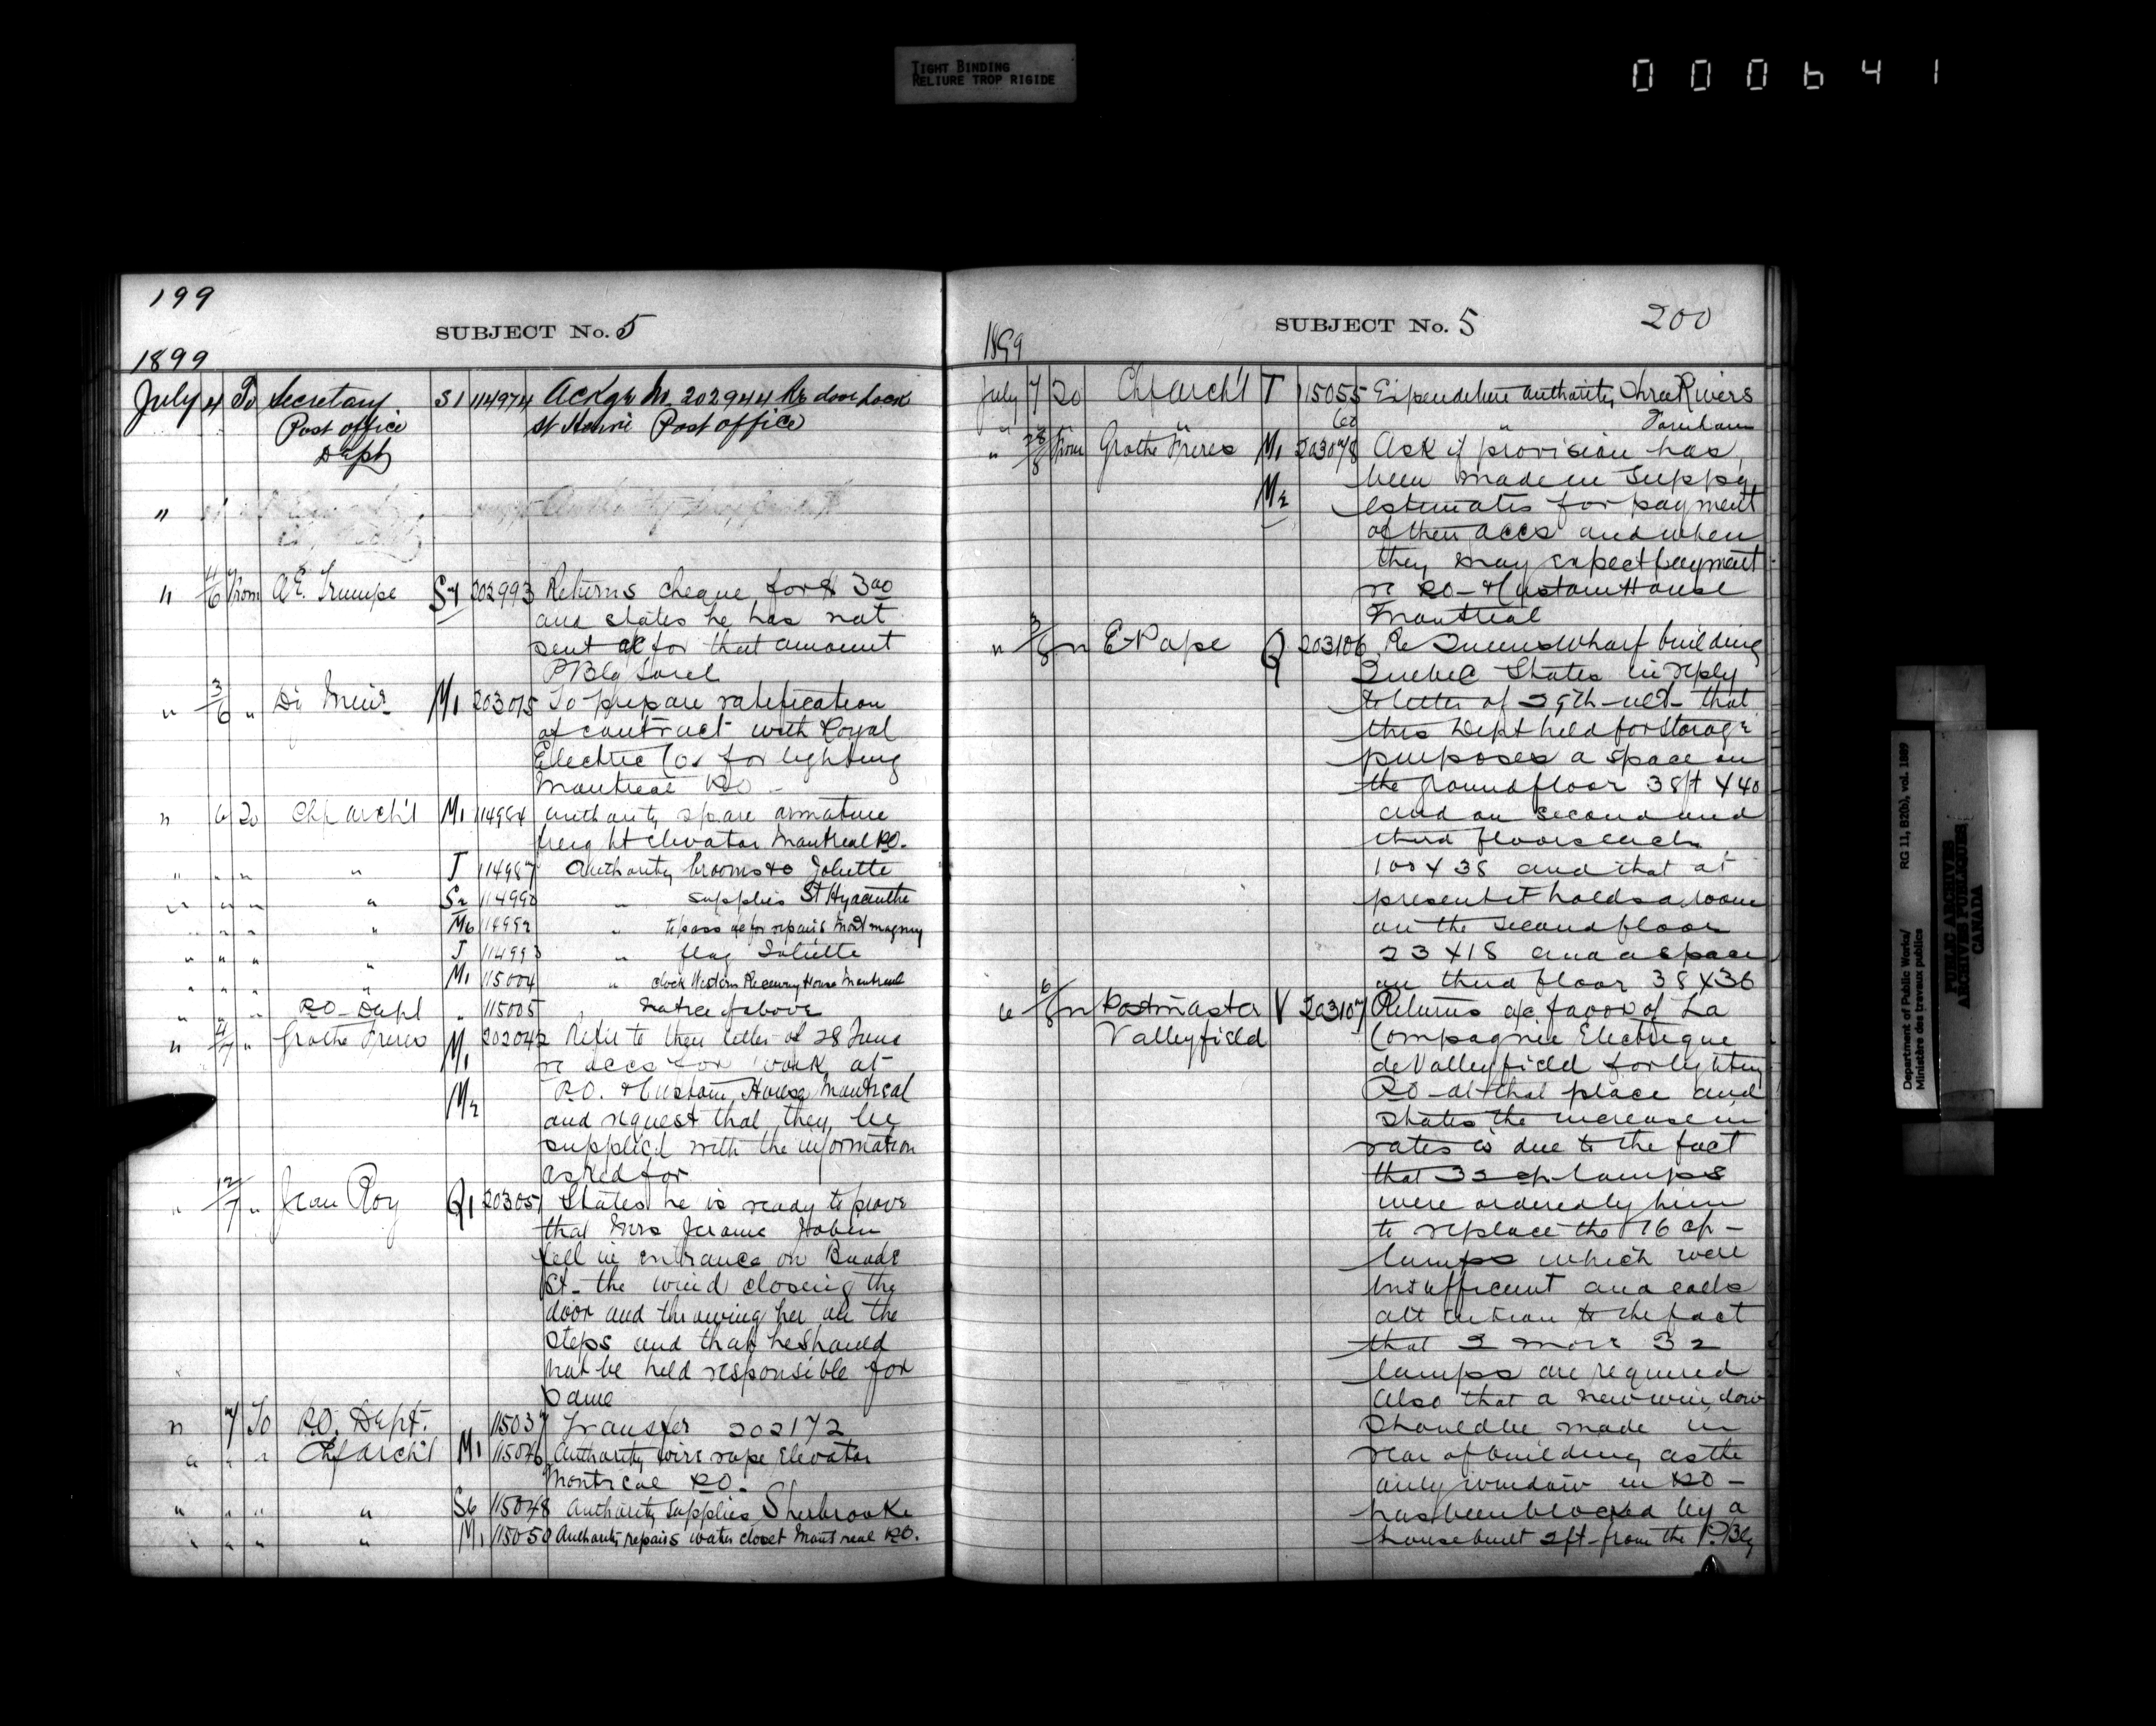 TIGHT BINDING
RELIURE TROP RIGIDE
000641
199
SUBJECT No. 5
1899
July 4 To Secretary S1 114974 Ackge No. 202944 Re door lock
Post office St Henri Post office
Dept
"
" 4/6 From A.E. Trempe S4 202993 Returns cheque for $ 3.00
and states he has not
sent a/c for that amount
P Blg Sorel
" 3/6 " M1 203015 To prepare ratification
of contract with Royal
Electric Co. for lighting
Montreal P.O.
" 6 To Chf arch't M1 114984 authority spare armature
freight elevator Montreal P.O.
" " " " J 114987 Authority brooms to Joliette
" " " " S2 114990 " supplies St Hyacinthe
" " " " M6 114992 " to pass a/c for repairs Montmagny
" " " " J 114993 " flag Joliette
" " " " M1 115004 " clock Western Receiving House Montreal
" " " P.O. Dept " 115005 Notice of above
" 4/7 " Grothe Freres M1 202042 Refer to their letter of 28 June
re accs for work at
M2 P.O. & Custom House Montreal
and request that they be
supplied with the information
asked for
" 12/7 " Jean Roy Q1 203051 States he is ready to prove
that Mrs Jerome
fell in entrance on Buade
St - the wind closing the
door and throwing her on the
steps and that he should
not be held responsible for
same
" 7 To P.O. Dept. 115037 Transfer 202172
" " " Chf arch't M1 115046 Authority wire rope Elevator
Montreal P.O.
" " " " S6 115048 Authority supplies Sherbrooke
" " " " M1 115050 Authority repairs water closet Montreal P.O.
SUBJECT No. 5
200
1899
July 7 To Chf arch't T 115055 Expenditure authority Three Rivers
" " 60 " Farnham
" 28/6 From Grothe Freres M1 203078 Ask if provision has
been made in Suppy
M2 estimates for payment
of their accs and when
they may expect payment
re P.O. & Custom House
Montreal
" 3/6 " E. Pape Q 203106 Re Queens Wharf building
Quebec States in reply
to letter of 29th ult - that
this Dept held for storage
purposes a space on
the ground floor 38 ft x 40
and on second and
third floors each
100 x 38 and that at
present it holds a room
on the second floor
23 x 18 and a space
on third floor 38 x 36
" 6/6 " Postmaster V 203107 Returns a/c favor of La
Valleyfield Compagnie Electrique
de Valleyfield for lighting
P.O. at that place and
states the increase in
rates is due to the fact
that 32 cp lamps
were ordered by him
to replace the 16 cp -
lamps which were
insufficient and calls
attention to the fact
that 2 more 32
lamps are required
Also that a new window
should be made in
rear of building as the
only window in P.O -
has been blocked by a
house built 2 ft from the P. Blg
Department of Public Works/
Ministère des travaux publics
RG 11, B2(b), vol. 1889
PUBLIC ARCHIVES
ARCHIVES PUBLIQUES
CANADA